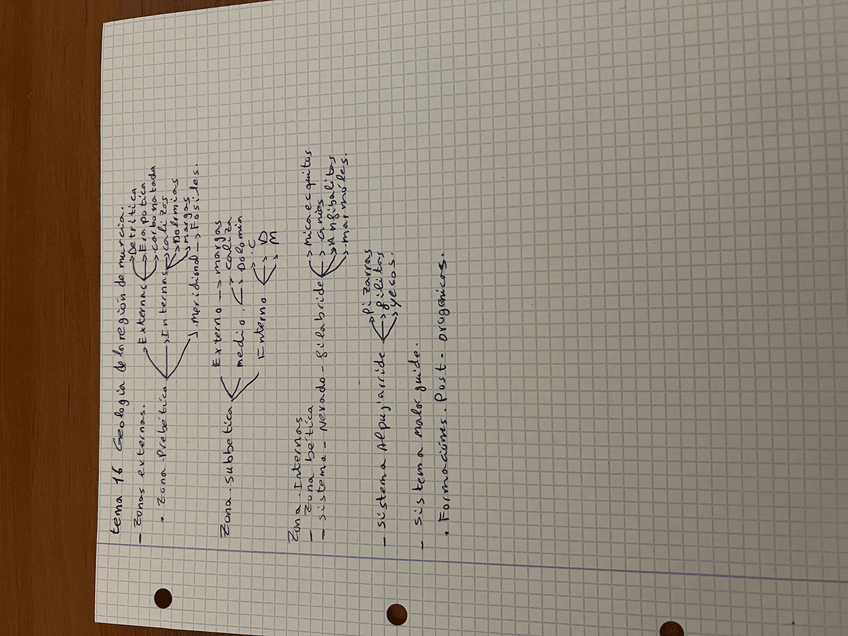 tema 16 Geología de la región de murcia.
- Zonas externas.
. Zona. Prebética
Externas
Detrítica
Erapotica
carbonatada
Internas
calizas
Dolomías
margas
meridional -> Fósiles.
Zona. Subbetica
Externo -> margas
medio.
caliza
Dolomín
Interno
C
D
M
Zona. Internas
- Zona bética
- sistema - Nevado - filabride
micaesquitos
Anfibalitos
marmoles.
- sistema Alpujarride
Pizarras
filitas
yesos.
- sistema maloguide.
. Formacións. Post - orogenicos.